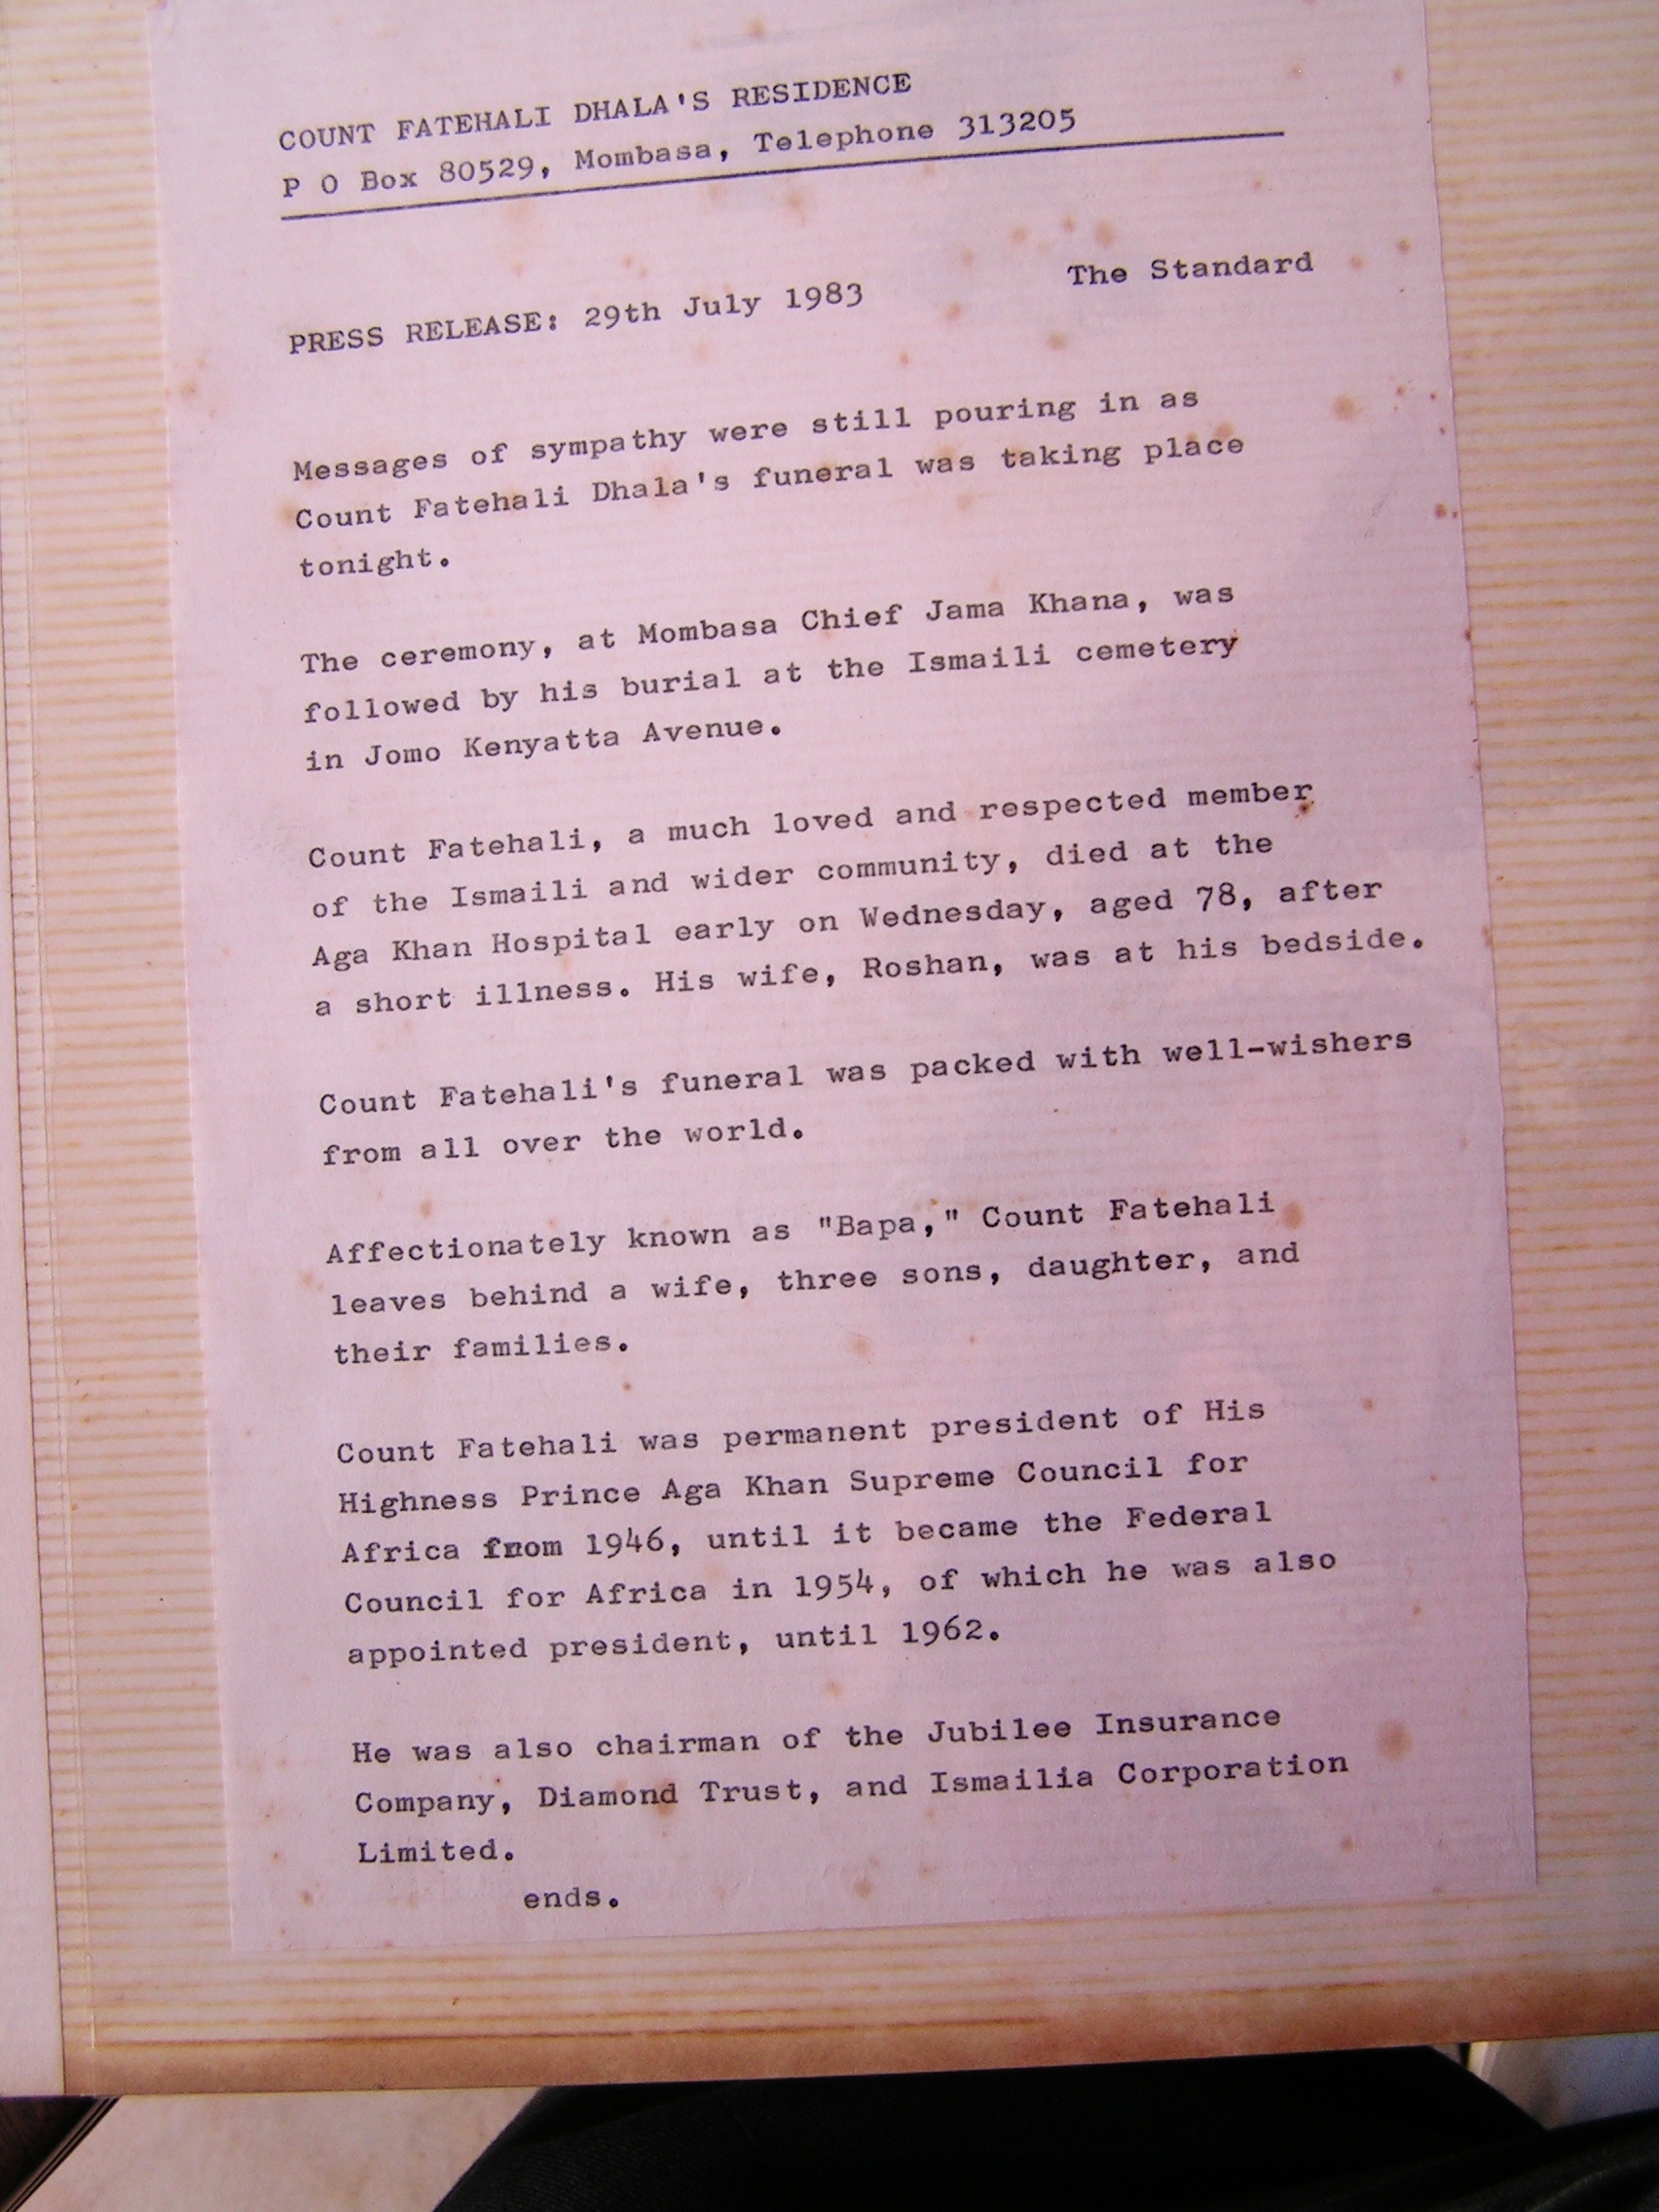 COUNT FATEHALI DHALA'S RESIDENCE
P O Box 80529, Mombasa, Telephone 313205
The Standard
PRESS RELEASE: 29th July 1983
Messages of sympathy were still pouring in as
Count Fatehali Dhala's funeral was taking place
tonight.
The ceremony, at Mombasa Chief Jama Khana, was
followed by his burial at the Ismaili cemetery
in Jomo Kenyatta Avenue.
Count Fatehali, a much loved and respected member
of the Ismaili and wider community, died at the
Aga Khan Hospital early on Wednesday, aged 78, after
a short illness. His wife, Roshan, was at his bedside.
Count Fatehali's funeral was packed with well-wishers
from all over the world.
Affectionately known as "Bapa," Count Fatehali
leaves behind a wife, three sons, daughter, and
their families.
Count Fatehali was permanent president of His
Highness Prince Aga Khan Supreme Council for
Africa from 1946, until it became the Federal
Council for Africa in 1954, of which he was also
appointed president, until 1962.
He was also chairman of the Jubilee Insurance
Company, Diamond Trust, and Ismailia Corporation
Limited.
ends.